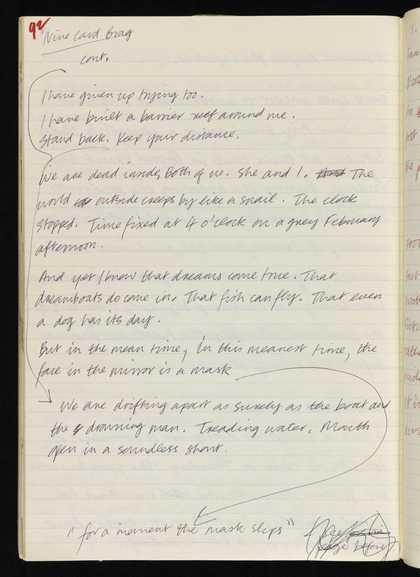 92
Nine Card Brag
cont.
I have given up trying too.
I have built a barrier reef around me.
Stand back. Keep your distance.
We are dead inside, both of us. She and I. The
world outside creeps by like a snail. The clock
stopped. Time fixed at 4 o'clock on a grey February
afternoon.
And yet I know that dreams come true. That
dreamboats do come in. That fish can fly. That even
a dog has its day.
But in the mean time, in this meanest time, the
face in the mirror is a mask
We are drifting apart as surely as the boat and
the drowning man. Treading water. Mouth
open in a soundless shout.
"for a moment the mask slips"